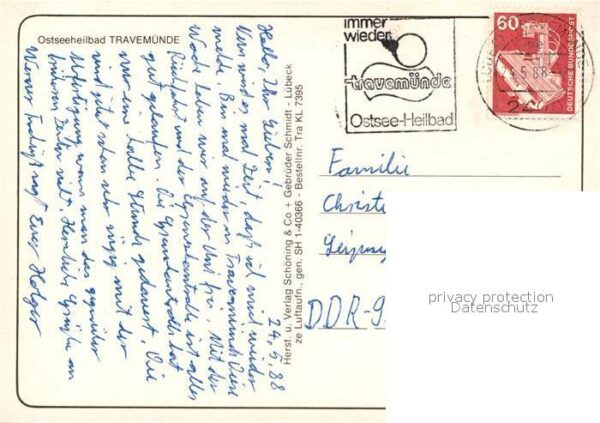 Ostseeheilbad TRAVEMÜNDE
24.5.88
Hallo, Ihr Lieben!
Nun wird es mal Zeit, daß ich mich wieder
melde. Bin mal wieder in Travemünde. Diese
Woche haben wir auf der Uni frei. Mit der
Rückfahrt und der Grenzkontrolle ist alles
gut gelaufen. Die Grenzkontrolle hat
nur eine halbe Stunde gedauert. Die
sind jetzt schon sehr zügig mit der
Abfertigung, wenn man das gegenüber
früheren Zeiten sieht. Herzliche Grüße an
Werner Euer Holger
Herst. u. Verlag Schöning & Co + Gebrüder Schmidt - Lübeck
ze Luftaufn., gen. SH 1-40366 - Bestellnr. Tra KL 7395
immer
wieder
travemünde
Ostsee-Heilbad
60
DEUTSCHE BUNDESPOST
24.5.88
24
Familie
Christe
Leipzig
DDR-9
privacy protection
Datenschutz